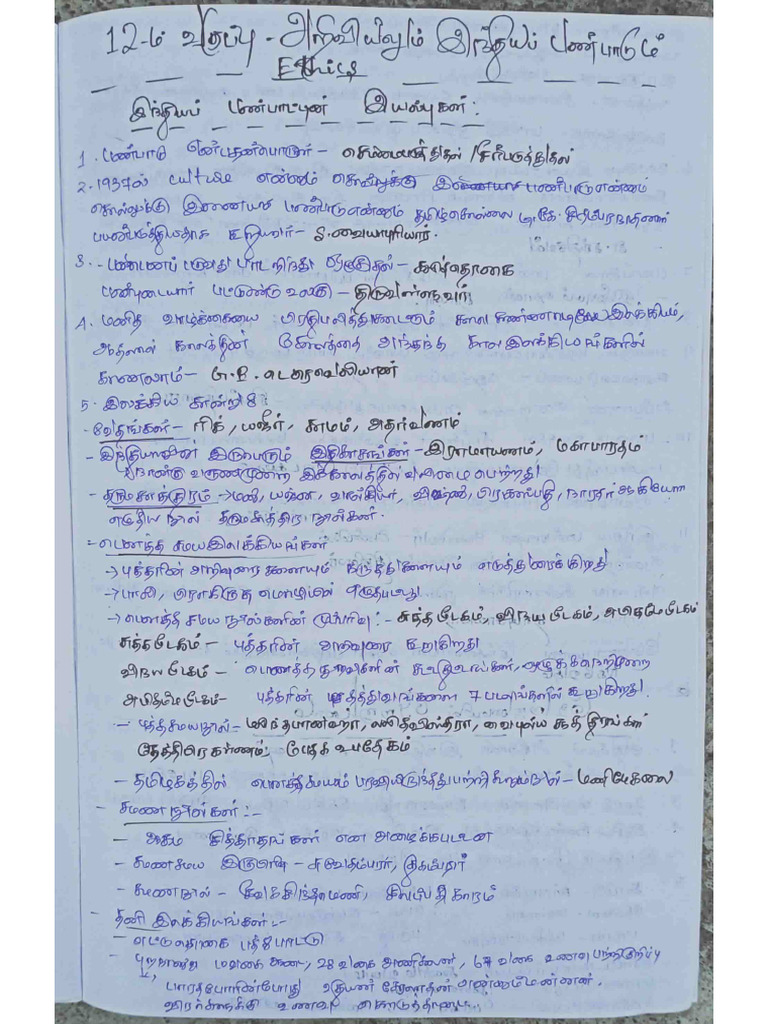 12-ம் வகுப்பு - அறவியலும் இந்தியப் பண்பாடும்
Ethics
இந்தியப் பண்பாட்டின் இயல்புகள் :
1. பண்பாடு என்பதன் பொருள் - செம்மைபடுத்துதல் / சீர்படுத்துதல்
2. 1937ல் culture என்னும் சொல்லுக்கு இணையாக பண்பாடு என்னும்
சொல்லுக்கு இணையாக பண்பாடு என்னும் தமிழ்சொல்லை டி.கே. சிதம்பரநாதனார்
பயன்படுத்தியதாக கூறியவர் - S. வையாபுரியார்.
3. - பண்பெனப் படுவது பாடறிந்து ஒழுகுதல் - கலித்தொகை
பண்புடையார் பட்டுண்டு உலகு - திருவள்ளுவர்
4. மனித வாழ்க்கையை பிரதிபலித்துகாட்டும் கால கண்ணாடியே இலக்கியம்,
ஆதலால் காலத்தின் கோலத்தை அந்தந்த கால இலக்கியங்களில்
காணலாம் - G.R.
5. இலக்கிய சான்று 8 :
- வேதங்கள் - ரிக், யஜீர், சாமம், அதர்வணம்
- இந்தியாவின் இருபெரும் இதிகாசங்கள் - இராமாயணம், மகாபாரதம்
நான்கு வருணமுறை இக்காலத்தில் வலிமை பெற்றது
- தருமசாத்திரம் - மனு, யக்ஞ, விஷ்ணு, பிரகஸ்பதி, நாரதர் ஆகியோர்
எழுதிய நூல் தருமசாத்திர நூல்கள்.
= பௌத்த சமய இலக்கியங்கள்
→ புத்தரின் அறிவுரைகளையும் கருத்துகளையும் எடுத்துரைக்கிறது
→ பாலி, பிராகிருத மொழியில் எழுதப்பட்டது
→ பௌத்த சமய நூல்களின் முப்பிரிவு :- சுத்த பீடகம், விநய பீடகம், அபிதம்ம பீடகம்
சுத்தபீடகம் - புத்தரின் அறிவுரை கூறுகிறது
விநய பீடகம் - பௌத்த துறவிகளின் ஒழுக்கநெறிமுறை
அபிதம்ம பீடகம் - புத்தரின் தத்துவங்களை 7 பகுதிகளில் கூறுகிறது
- தமிழகத்தில் பௌத்தசமயம் பரவியிருந்தது பற்றி கூறும் நூல் - மணிமேகலை
- சமண நூல்கள் :-
- அகம சித்தாந்தங்கள் என அழைக்கப்பட்டன
- சமணசமய இருபிரிவு - சுவேதம்பரர், திகம்பரர்
- சமணநூல் - சீவகசிந்தாமணி, சிலப்பதிகாரம்
- தனி இலக்கியங்கள் :-
- எட்டுதொகை பத்துபாட்டு
- புறநானூறு மலைகள் 28 வகை அணிகலன், 67 வகை உணவு பற்றி குறிப்பு
பாரதபோரின்போது உதியன் சேரலாதன் என்னும் மன்னன்.
வீரர்களுக்கு உணவு கொடுத்தான்.